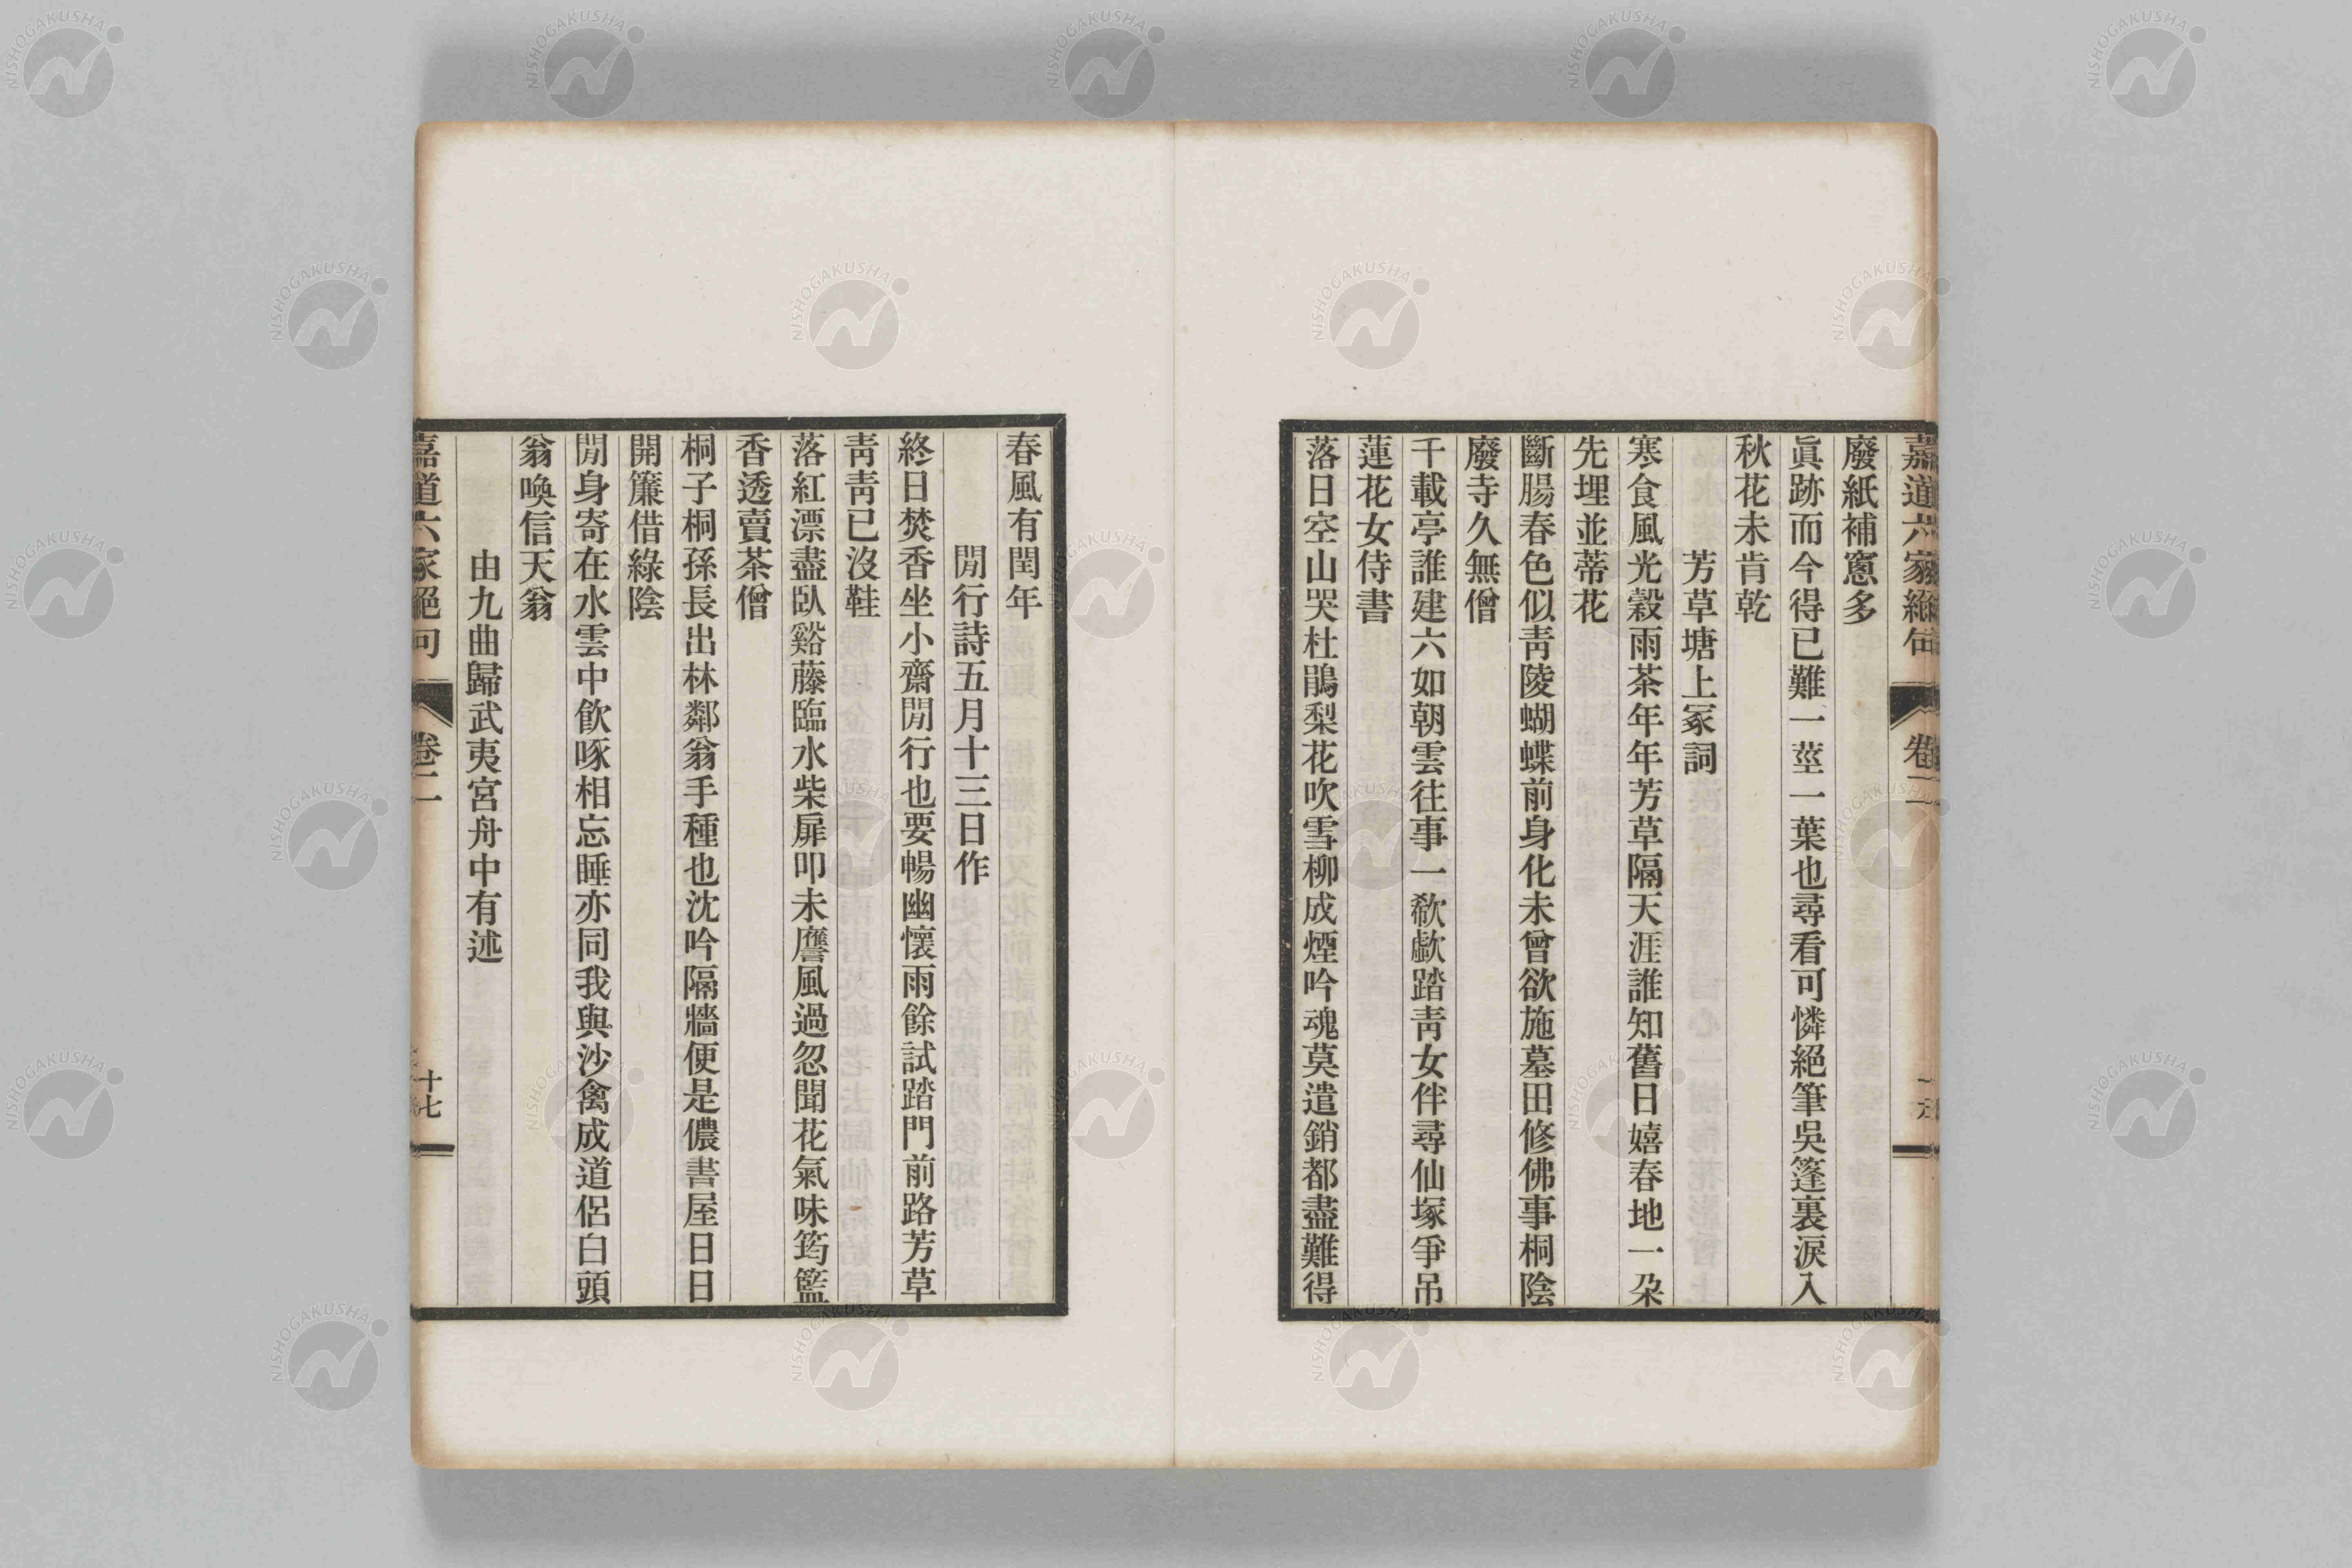 嘉道六家絕句
卷二
廢紙補窻多
眞跡而今得已難一莖一葉也尋看可憐絕筆吳篷裏淚入
秋花未肯乾
芳草塘上冢詞
寒食風光穀雨茶年年芳草隔天涯誰知舊日嬉春地一朶
先埋並蒂花
斷腸春色似靑陵蝴蝶前身化未曾欲施墓田修佛事桐陰
廢寺久無僧
千載亭誰建六如朝雲往事一欷歔踏靑女伴尋仙塚爭吊
蓮花女侍書
落日空山哭杜鵑梨花吹雪柳成煙吟魂莫遣銷都盡難得
春風有閏年
閒行詩五月十三日作
終日焚香坐小齋閒行也要暢幽懷雨餘試踏門前路芳草
靑靑已沒鞋
落紅漂盡臥谿藤臨水柴扉叩未譍風過忽聞花氣味筠籃
香透賣茶僧
桐子桐孫長出林鄰翁手種也沈吟隔牆便是儂書屋日日
開簾借綠陰
閒身寄在水雲中飮啄相忘睡亦同我與沙禽成道侶白頭
翁喚信天翁
由九曲歸武夷宮舟中有述
嘉道六家絕句
卷二
十七
NISHOGAKUSHA